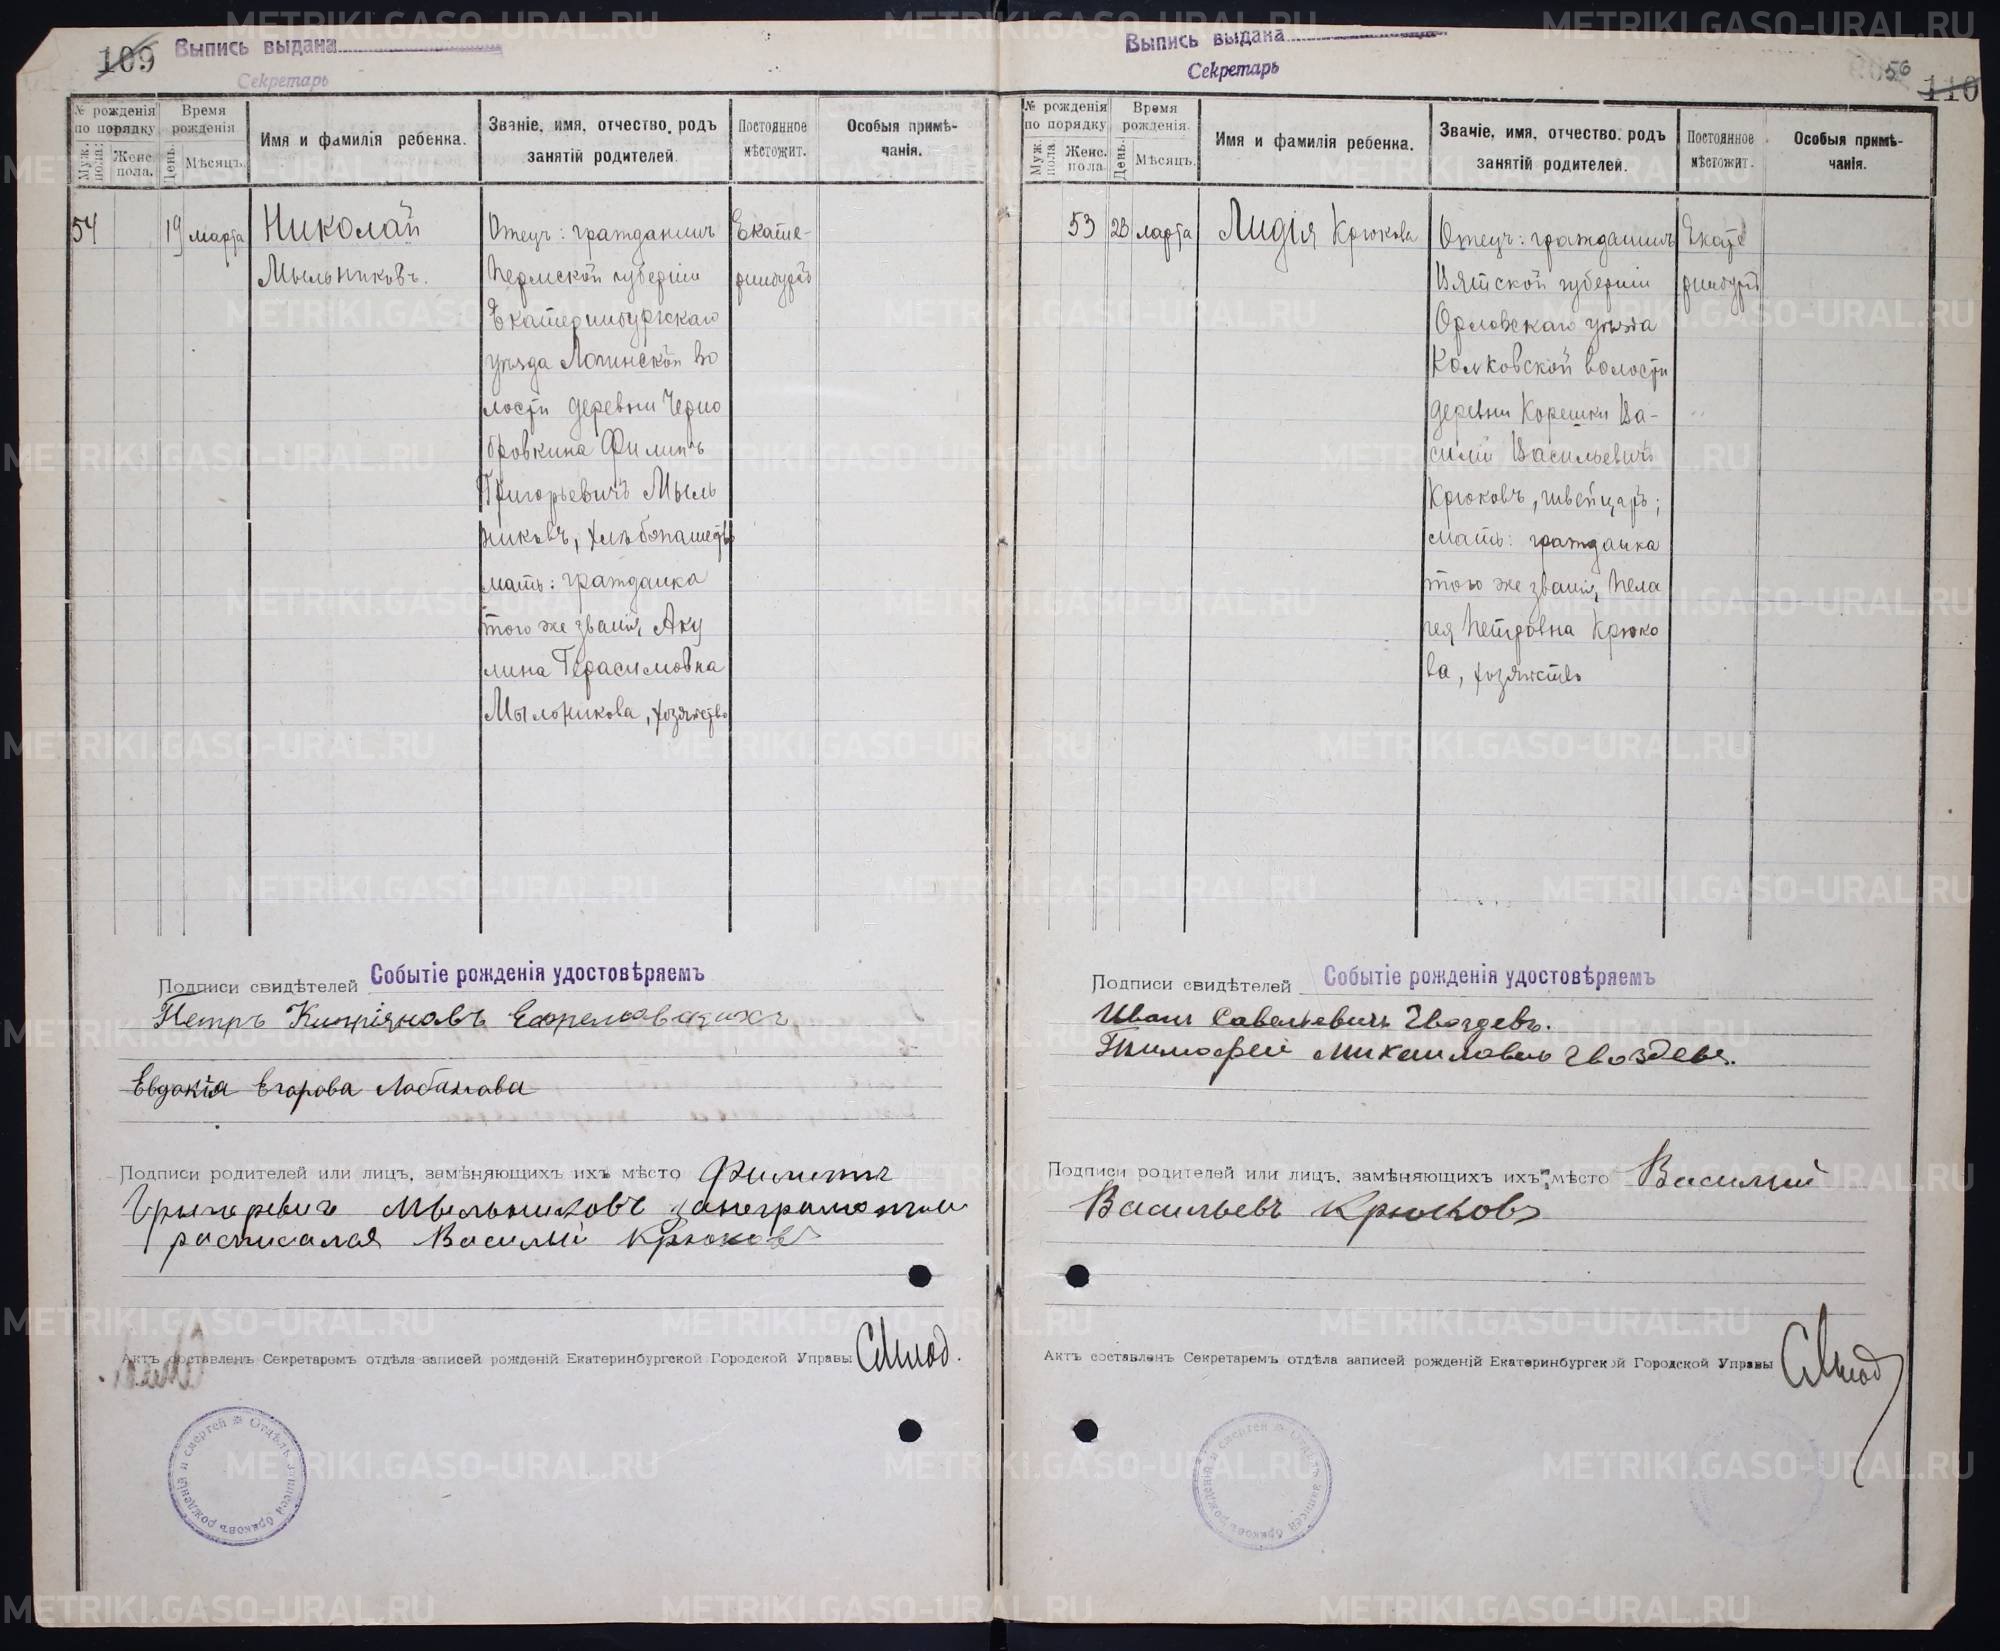 109 Выпись выдана
Секретарь
№ рожденія по порядку
Муж. пола.
Женс. пола.
Время рожденія
День.
Мѣсяцъ.
Имя и фамилія ребенка.
Званіе, имя, отчество, родъ занятій родителей.
Постоянное мѣстожит.
Особыя примѣ-
чанія.
54 19 марта
Николай
Мыльниковъ.
Отецъ: гражданинъ
Пермской губерніи
Екатеринбургскаго
уѣзда Логинской во
лости деревни Черно
бровкина Филипъ
Григорьевичъ Мыль
никовъ, хлѣбопашество
мать: гражданка
того же званія, Аку
лина Герасимовна
Мыльникова, хозяйство
Екате-
ринбургъ
Подписи свидѣтелей Событіе рожденія удостовѣряемъ
Петръ Кипріяновъ
Евдокія Егорова Лобанова
Подписи родителей или лицъ, замѣняющихъ ихъ мѣсто Филиппъ
Григоревичъ Мыльниковъ
расписался Василій Крюковъ
Актъ составленъ Секретаремъ отдѣла записей рожденій Екатеринбургской Городской Управы
Отдѣлъ записей браковъ рожденій и смертей
Выпись выдана
Секретарь
56
110
№ рожденія по порядку
Муж. пола.
Женс. пола.
Время рожденія.
День.
Мѣсяцъ.
Имя и фамилія ребенка.
Званіе, имя, отчество, родъ занятій родителей.
Постоянное мѣстожит.
Особыя примѣ-
чанія.
53 23 марта
Лидія Крюкова
Отецъ: гражданинъ
Вятской губерніи
Орловскаго уѣзда
Колковской волости
деревни Корешки Ва-
силій Васильевичъ
Крюковъ, швейцаръ;
мать: гражданка
того же званія, Пела
гея Петровна Крюко
ва, хозяйство
Екате
ринбургъ
Подписи свидѣтелей Событіе рожденія удостовѣряемъ
Иванъ Савельевичъ Гвоздевъ.
Тимофей Михаиловичъ Гвоздевъ.
Подписи родителей или лицъ, замѣняющихъ ихъ мѣсто Василий
Васильевъ Крюковъ
Актъ составленъ Секретаремъ отдѣла записей рожденій Екатеринбургской Городской Управы
Отдѣлъ записей браковъ рожденій и смертей
METRIKI.GASO-URAL.RU